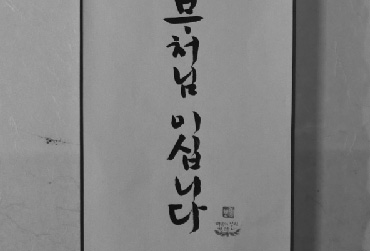 부처님 이십니다